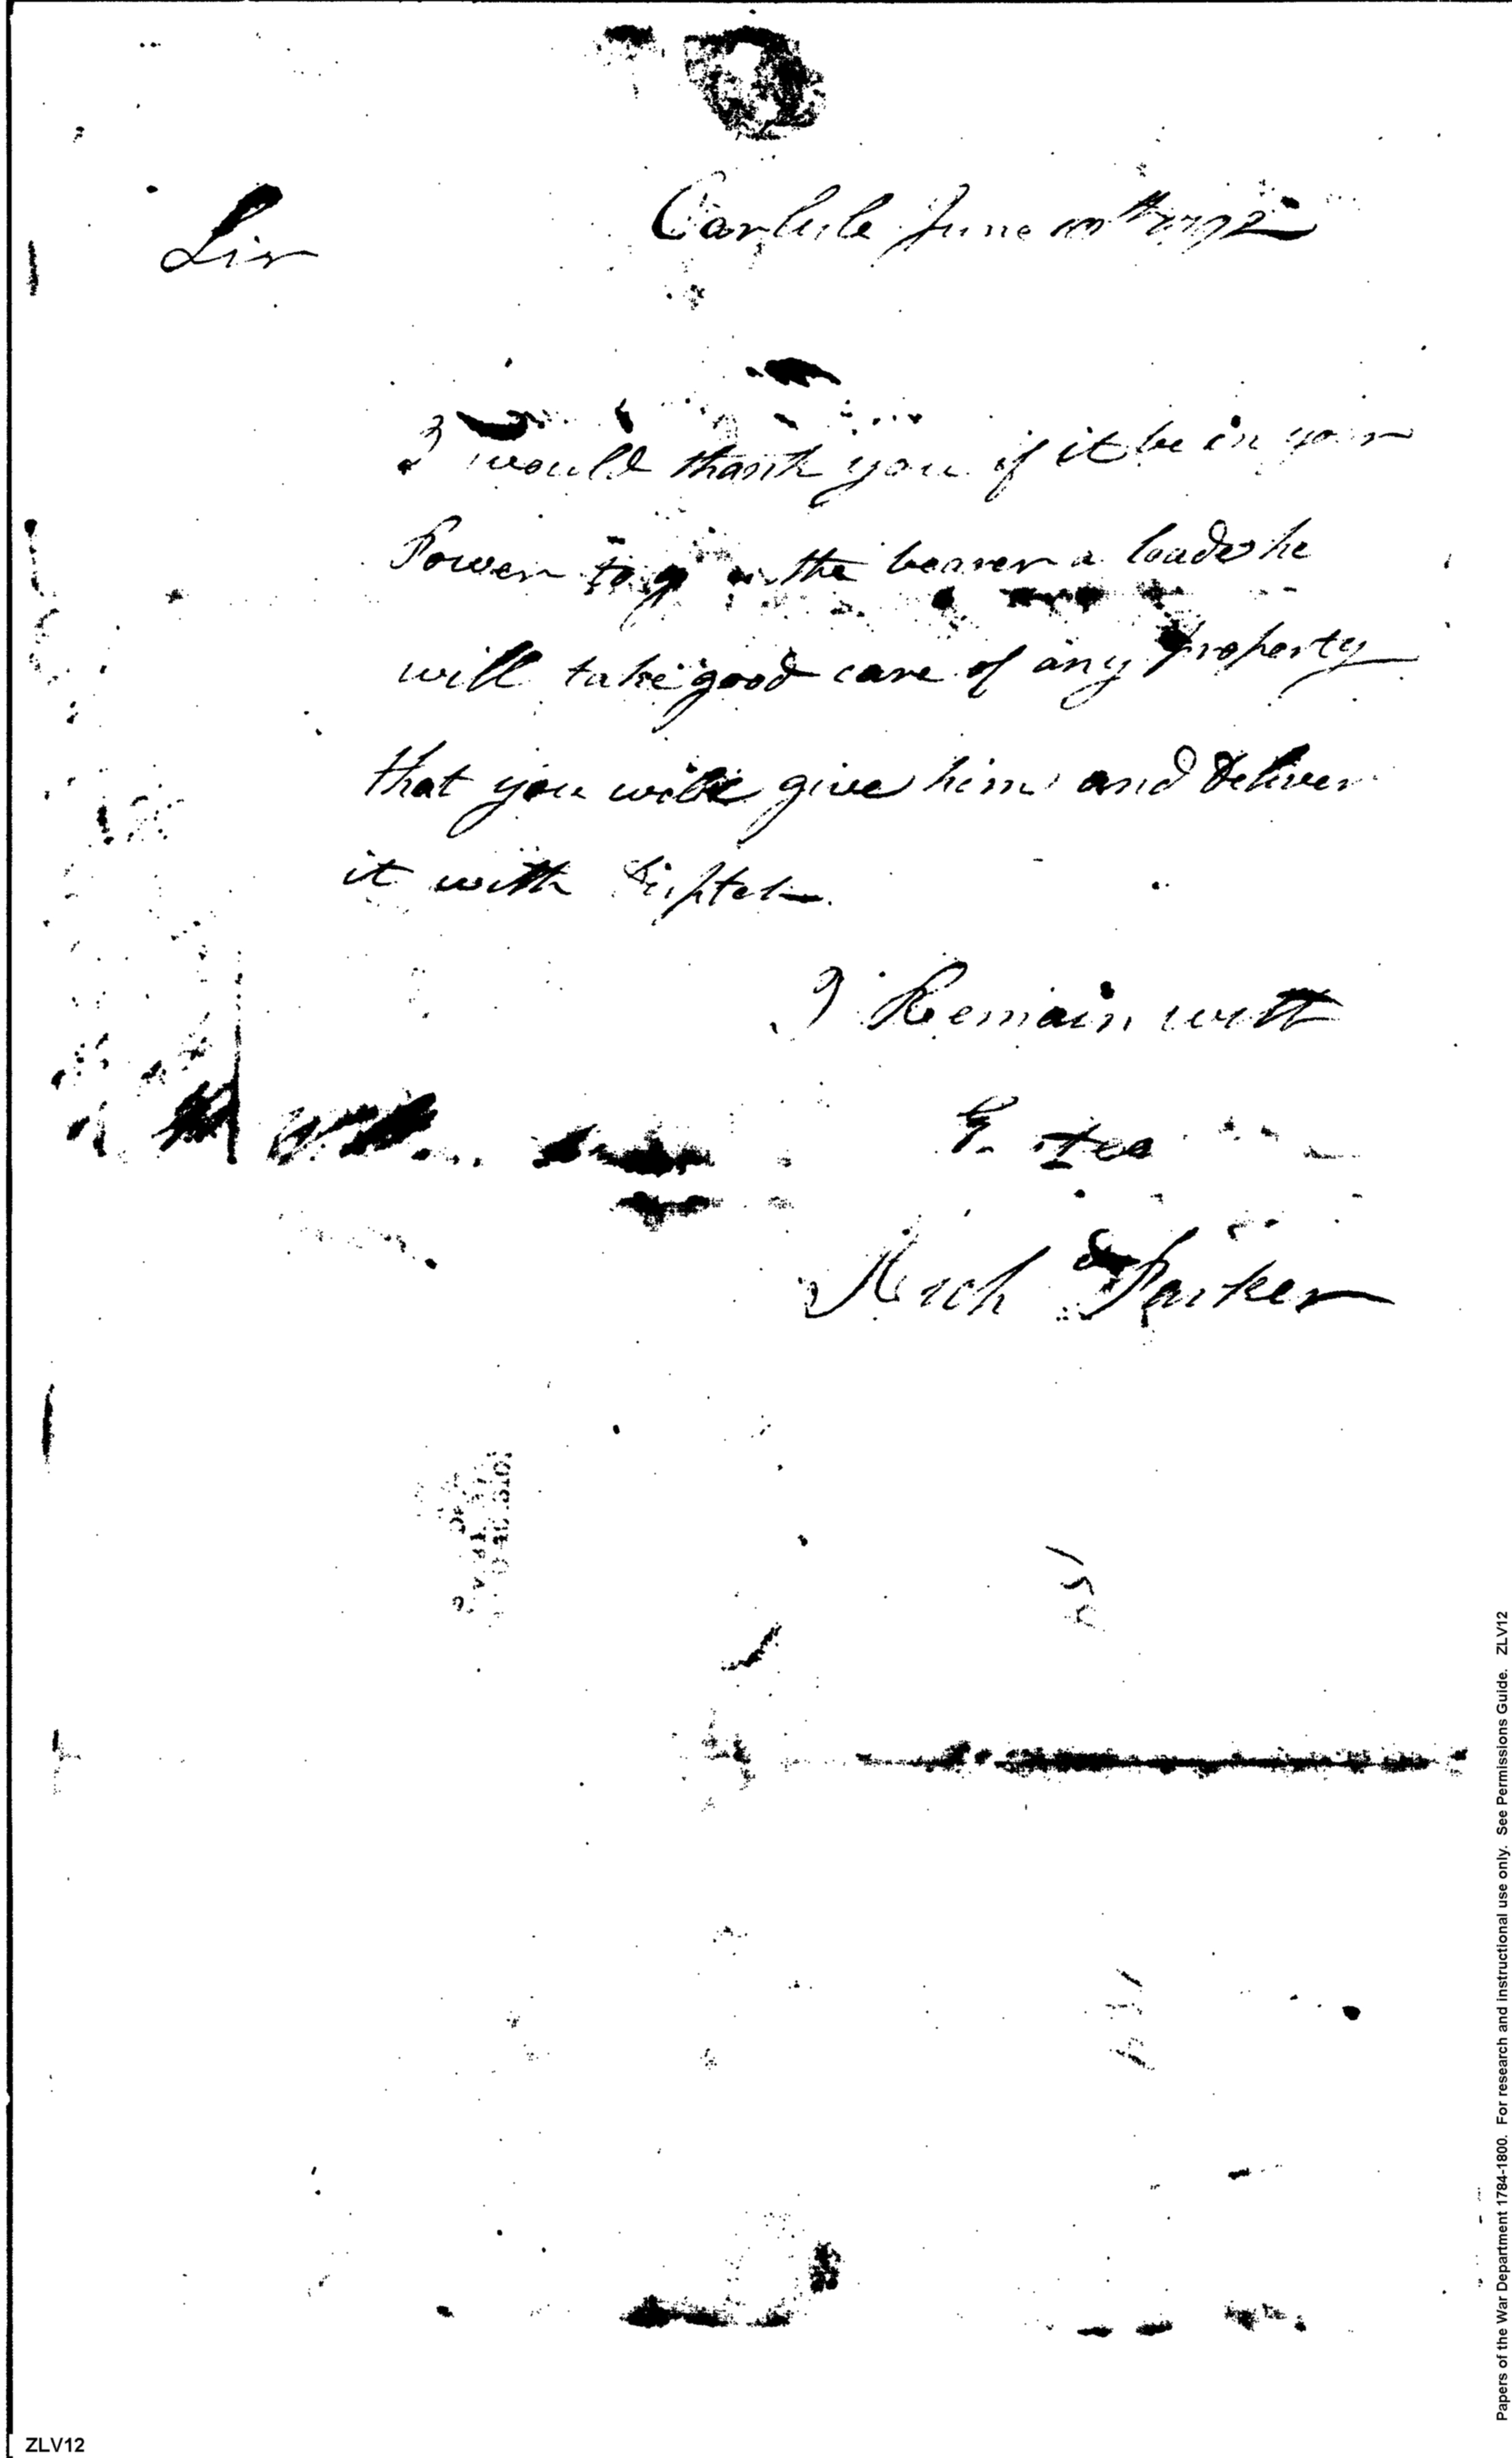 Carlisle June 10th 1792
Sir
I would thank you if it be in your
Power to the bearer a load he
will take good care of any property
that you will give him and deliver
it with
I Remain with
Rich d Parker
Papers of the War Department 1784-1800. For research and instructional use only. See Permissions Guide. ZLV12
ZLV12